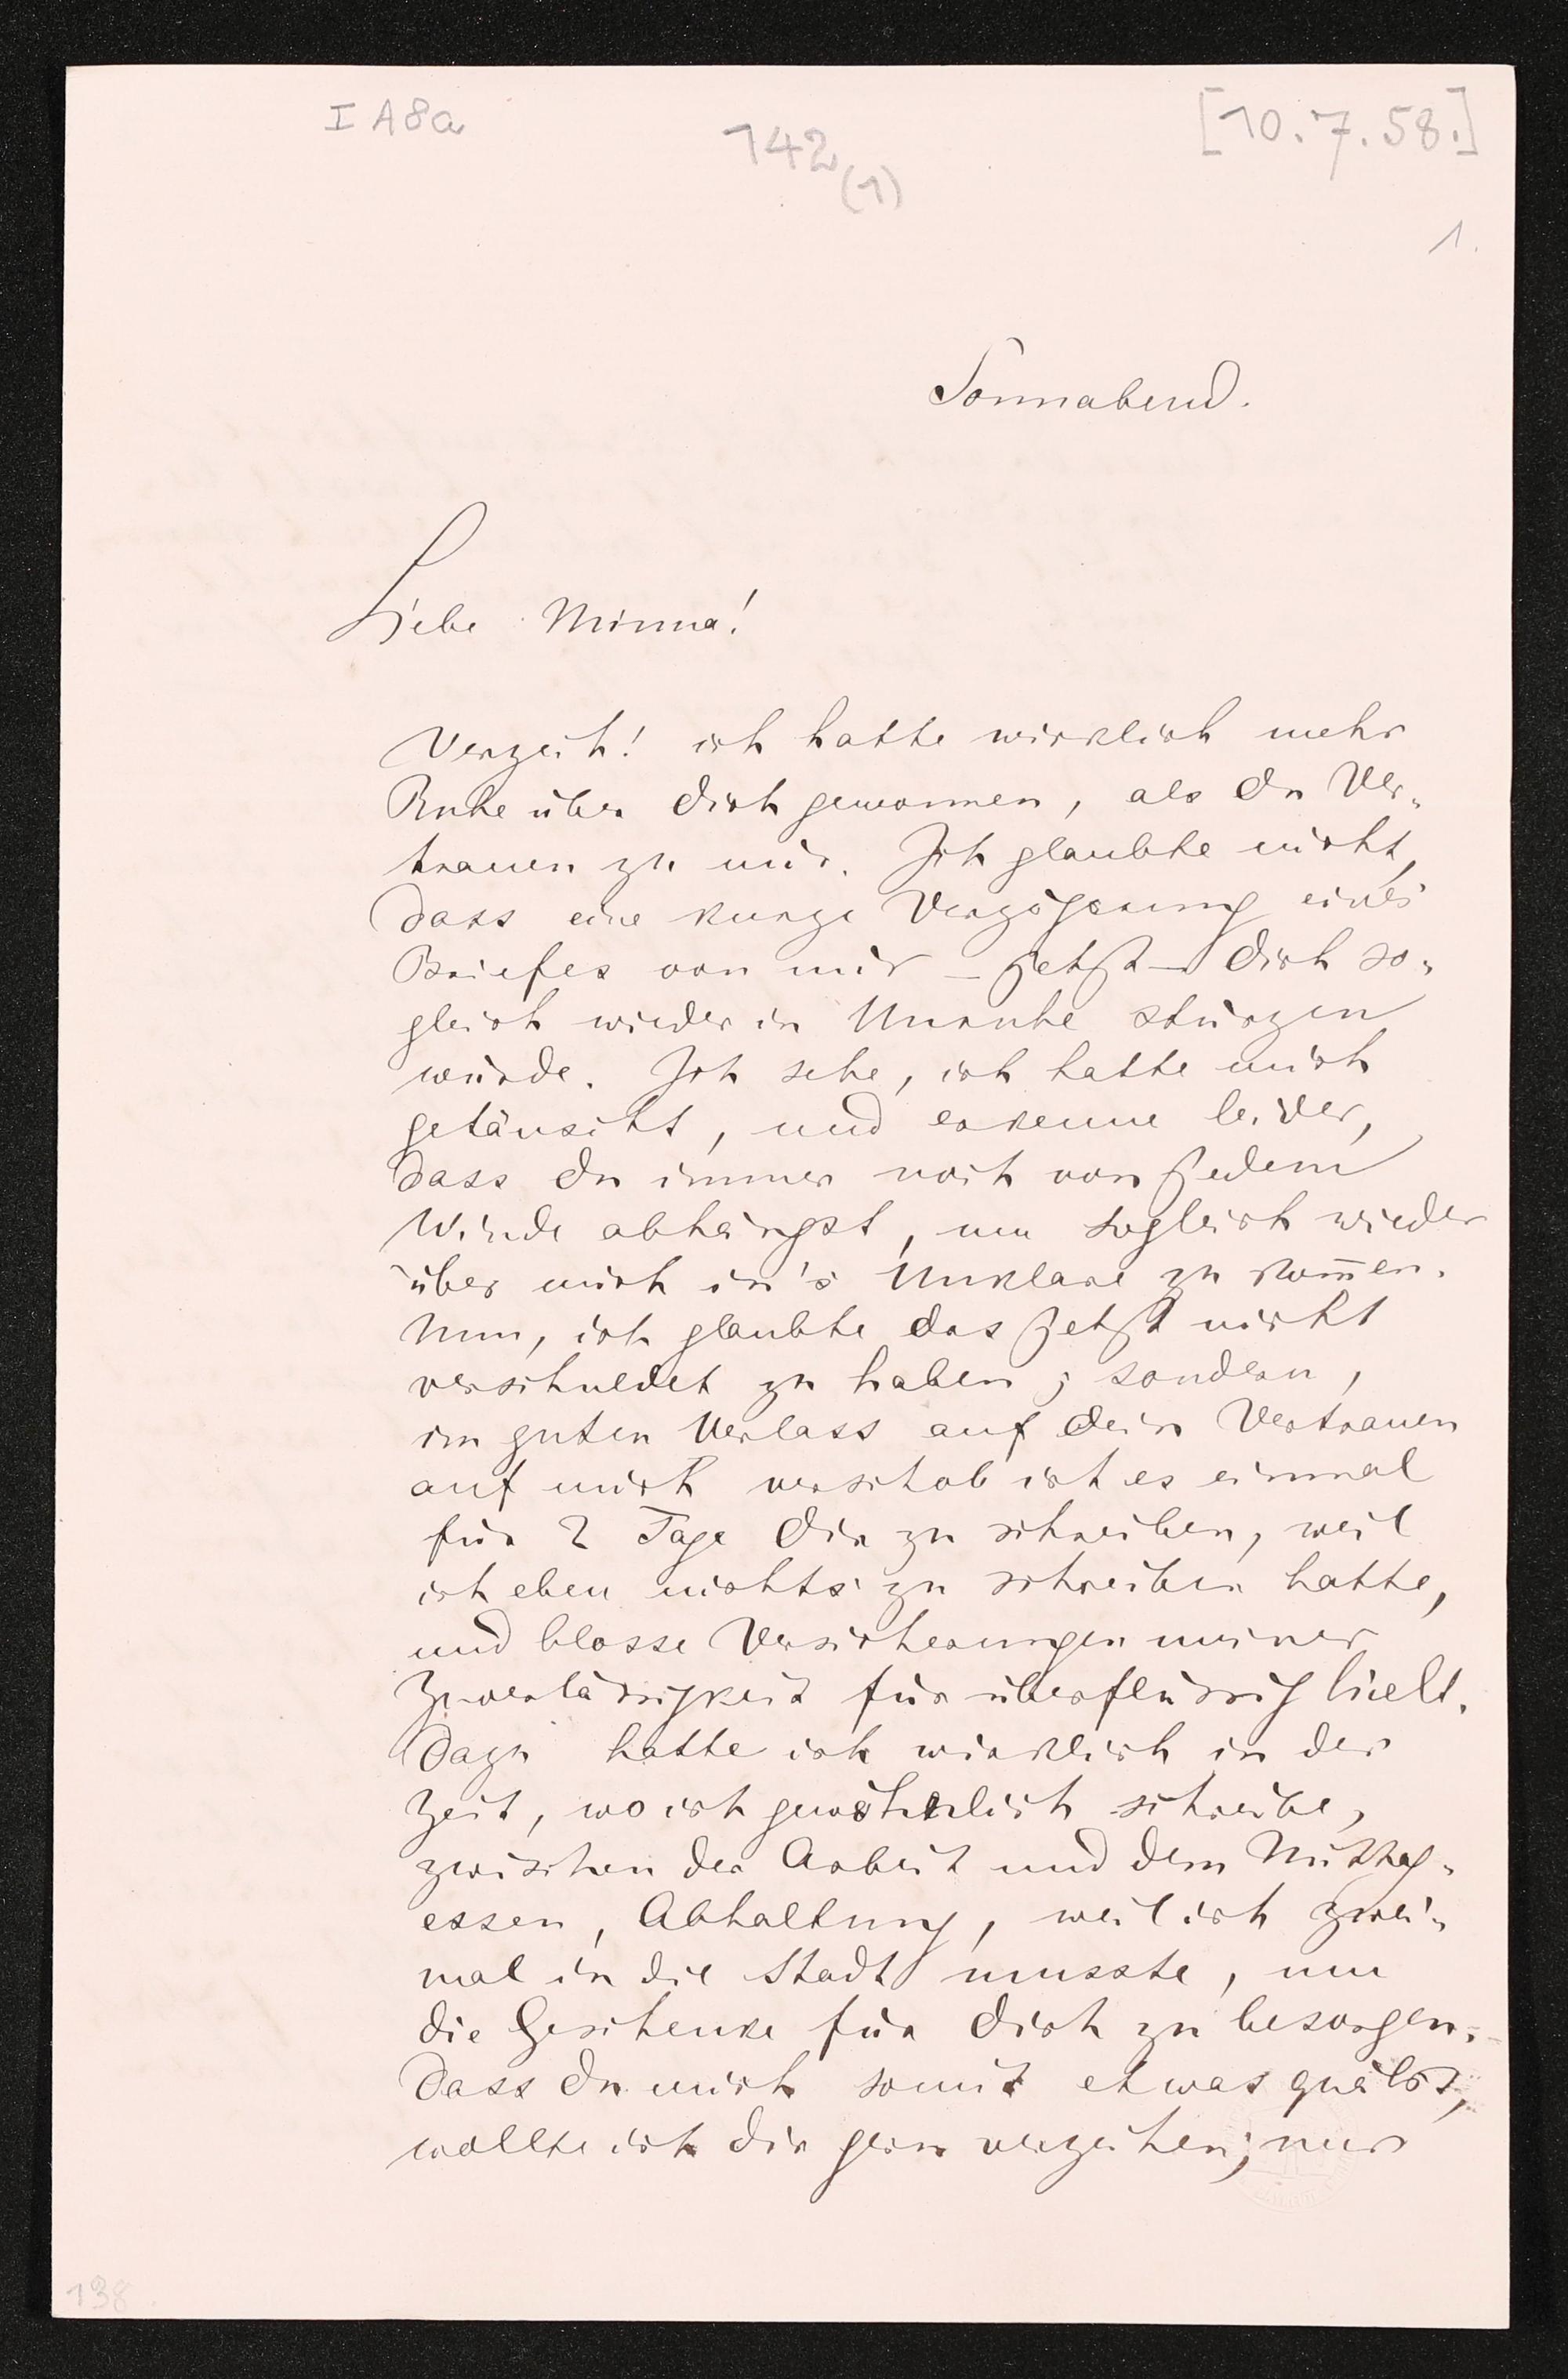 I A8a
142
(1)
[10.7.58.]
1.
Sonnabend.
Liebe Minna!
Verzeih! ich hatte wirklich mehr
Ruhe über dich gewonnen, als du Ver-
trauen zu mir. Ich glaubte nicht,
dass eine kurze Verzögerung eines
Briefes von mir – jetzt – dich so-
gleich wieder in Unruhe stürzen
würde. Ich sehe, ich hatte mich
getäuscht, und erkenne leider,
dass du immer noch von jedem
Winde abhängst, um sogleich wieder
über mich in's Unklare zu kom̄en.
Nun, ich glaubte das jetzt nicht
verschuldet zu haben; sondern,
im guten Verlass auf dein Vertrauen
auf mich verschob ich es einmal
für 2 Tage dir zu schreiben, weil
ich eben nichts zu schreiben hatte,
und blosse Versicherungen meiner
Zuverlässigkeit für überflüssig hielt.
Dazu hatte ich wirklich in der
Zeit, wo ich gewöhnlich schreibe,
zwischen der Arbeit und dem Mittag-
essen, Abhaltung, weil ich zwei-
mal in die Stadt musste, um
die Geschenke für dich zu besorgen.
Dass du mich somit etwas quälst,
wollte ich dir gern verzeihen; nur
138